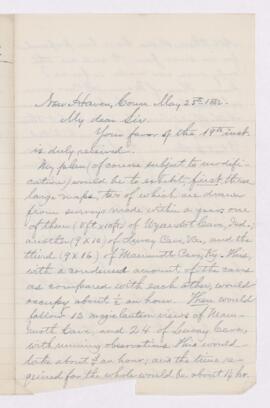 New Haven, Conn May 23rd 1882.
My dear Sir.
Your favor of the 19th inst.
is duly received.
My plan (of course subject to modifi-
cation) would be to exhibit first three
large maps, two of which are drawn
from surveys made within a year; one
of them (8 ft x 10 ft) of Wyandot Cave, Ind.;
another (9 x 10) of Luray Cave, Va., and the
third (9 x 16) of Mammoth Cave, Ky. This,
with a condensed account of the caves
as compared with each other, would
occupy about ½ an hour. Then would
follow 12 magic lantern views of Mam-
moth Cave, and 24 of Luray Cave,
with running observations. This would
take about ¾ an hour; and the time re-
quired for the whole would be about 1¼ hr.